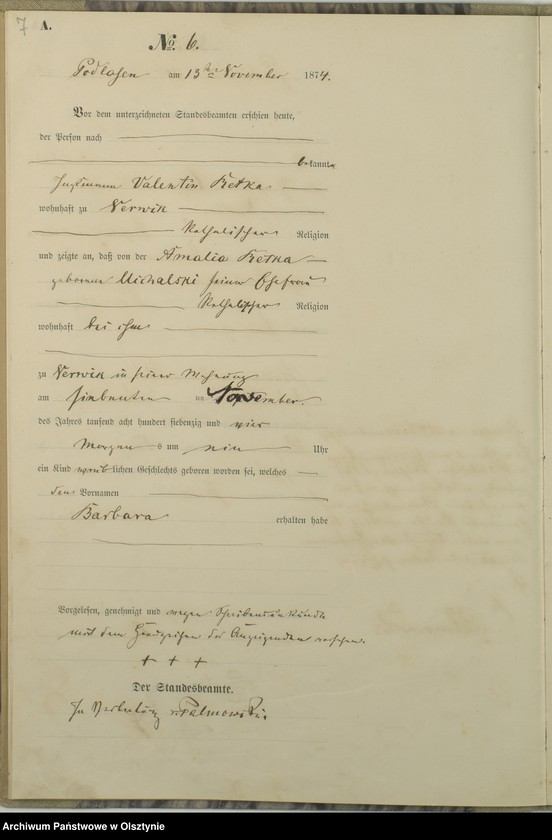 7
A.
No. 6.
Podlasen am 13ten November 1874.
Vor dem unterzeichneten Standesbeamten erschien heute,
der Person nach
bekannt,
Valentin
wohnhaft zu
Katholischer Religion
und zeigte an, daß von der Amalia
geborene Michalski seiner Ehefrau
Katholischer Religion
wohnhaft bei ihm
zu in seiner Wohnung
am siebenten November
des Jahres tausend acht hundert siebenzig und vier
Morgens um Uhr
ein Kind weiblichen Geschlechts geboren worden sei, welches
den Vornamen
Barbara erhalten habe
Vorgelesen, genehmigt und wegen Schreibensunkunde
mit dem Handzeichen des Anzeigenden versehen.
+ + +
Der Standesbeamte.
In Vertretung v. Palmowski.
Archiwum Państwowe w Olsztynie